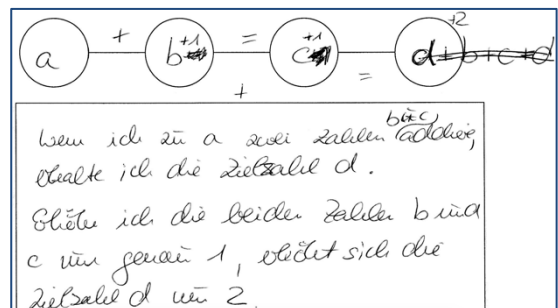 + = +2
a b+1 c+1 d+b+c+d
+ =
b u c
Wenn ich zu a zwei Zahlen addiere,
erhalte ich die Zielzahl d.
Erhöhe ich die beiden Zahlen b und
c um genau 1, erhöht sich die
Zielzahl d um 2.